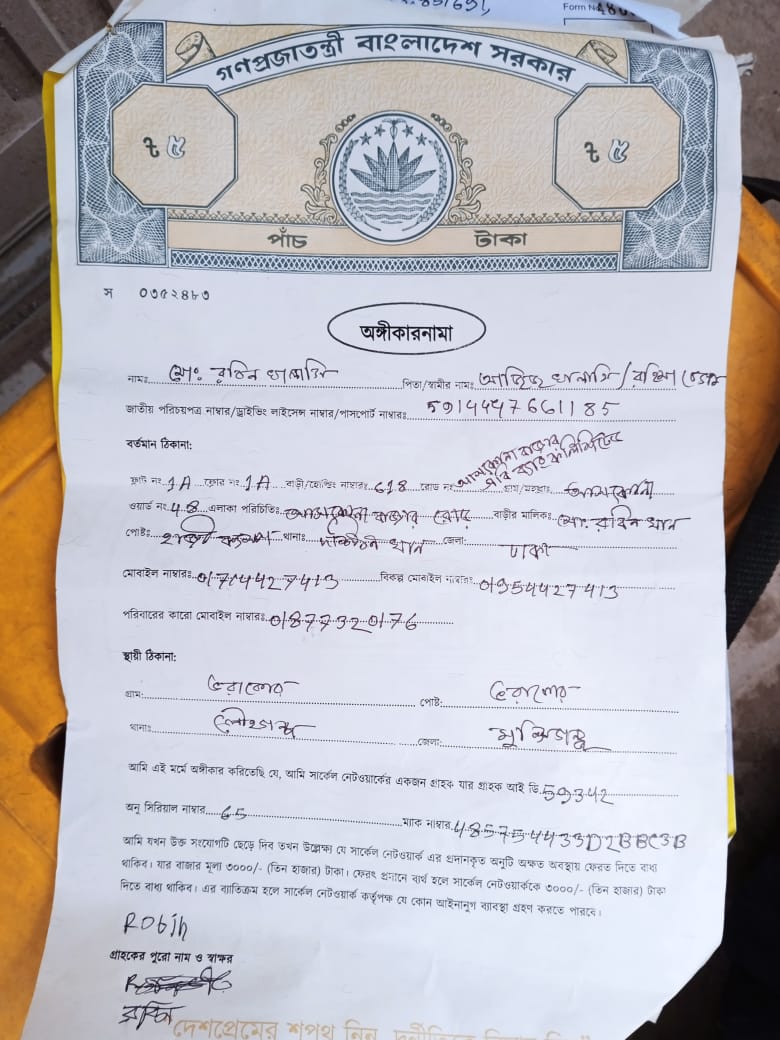 Form N 480
গণপ্রজাতন্ত্রী বাংলাদেশ সরকার
৳ ৫ ৳ ৫
পাঁচ টাকা
স ০৩৫২৪৮৩
অঙ্গীকারনামা
নামঃ মোঃ রবিন খালাসি পিতা/স্বামীর নামঃ আজিজ খালাসি/রহিমা বেগম
জাতীয় পরিচয়পত্র নাম্বার/ড্রাইভিং লাইসেন্স নাম্বার/পাসপোর্ট নাম্বারঃ 5914447661185
বর্তমান ঠিকানা:
ফ্লাট নং 1A ফ্লোর নং 1A বাড়ী/হোল্ডিং নাম্বারঃ 618 রোড নং আশকোনা বাজার গ্রাম/মহল্লাঃ আশকোনা
ওয়ার্ড নং 48 এলাকা পরিচিতিঃ আশকোনা বাজার রোড বাড়ীর মালিকঃ মোঃ রবিন খান
পোষ্টঃ হাজী ক্যাম্প থানাঃ দক্ষিণ খান জেলা: ঢাকা
মোবাইল নাম্বারঃ 01714427413 বিকল্প মোবাইল নাম্বারঃ 01954427413
পরিবারের কারো মোবাইল নাম্বারঃ 01877320176
স্থায়ী ঠিকানা:
গ্রাম: পোষ্ট:
থানাঃ লৌহজং জেলা: মুন্সিগঞ্জ
আমি এই মর্মে অঙ্গীকার করিতেছি যে, আমি সার্কেল নেটওয়ার্কের একজন গ্রাহক যার গ্রাহক আই ডি 59342
অনু সিরিয়াল নাম্বার 65 ম্যাক নাম্বার 485754433D2BBC3B
আমি যখন উক্ত সংযোগটি ছেড়ে দিব তখন উল্লেক্ষ্য যে সার্কেল নেটওয়ার্ক এর প্রদানকৃত অনুটি অক্ষত অবস্থায় ফেরত দিতে বাধ্য
থাকিব। যার বাজার মূল্য ৩০০০/- (তিন হাজার) টাকা। ফেরৎ প্রদানে ব্যর্থ হলে সার্কেল নেটওয়ার্ককে ৩০০০/- (তিন হাজার) টাকা
দিতে বাধ্য থাকিব। এর ব্যাতিক্রম হলে সার্কেল নেটওয়ার্ক কর্তৃপক্ষ যে কোন আইনানুগ ব্যাবস্থা গ্রহণ করতে পারবে।
RObin
গ্রাহকের পুরো নাম ও স্বাক্ষর
রবিন
"দেশপ্রেমের শপথ নিন, দুর্নীতিকে বিদায় দিন"